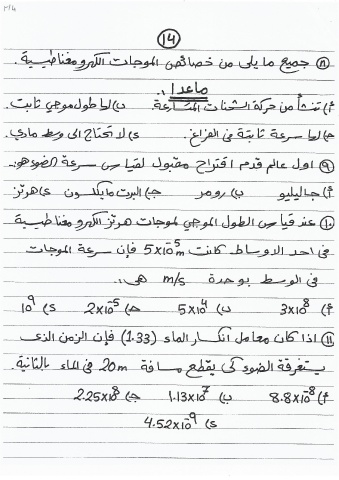 ١٤
٨) جميع ما يلي من خصائص الموجات الكهرومغناطيسية.
ماعدا :.
أ) تنشأ من حركة الشحنات المتسارعة. ب) لها طول موجي ثابت.
ج) لها سرعة ثابتة في الفراغ. د) لا تحتاج الى وسط مادي.
٩) اول عالم قدم اقتراح مقبول لقياس سرعة الضوء هو:
أ) جاليليو ب) رومر ج) البرت مايكلسون د) هرتز
١٠) عند قياس الطول الموجي لموجات هرتز الكهرومغناطيسية
في احد الاوساط كانت 5x10⁻⁵m فإن سرعة الموجات
في الوسط بوحدة m/s هي :.
أ) 3x10⁸ ب) 5x10⁴ ج) 2x10⁻⁵ د) 10⁹
١١) اذا كان معامل انكسار الماء (1.33) فإن الزمن الذي
يستغرقة الضوء كي يقطع مسافة 20m في الماء بالثانية.
أ) 8.8x10⁻⁸ ب) 1.13x10⁷ ج) 2.25x10⁸
د) 4.52x10⁻⁹